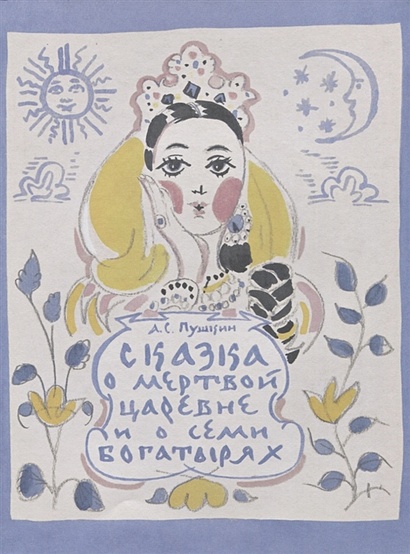 А. С. Пушкин
Сказка
о мертвой
царевне
и о семи
богатырях